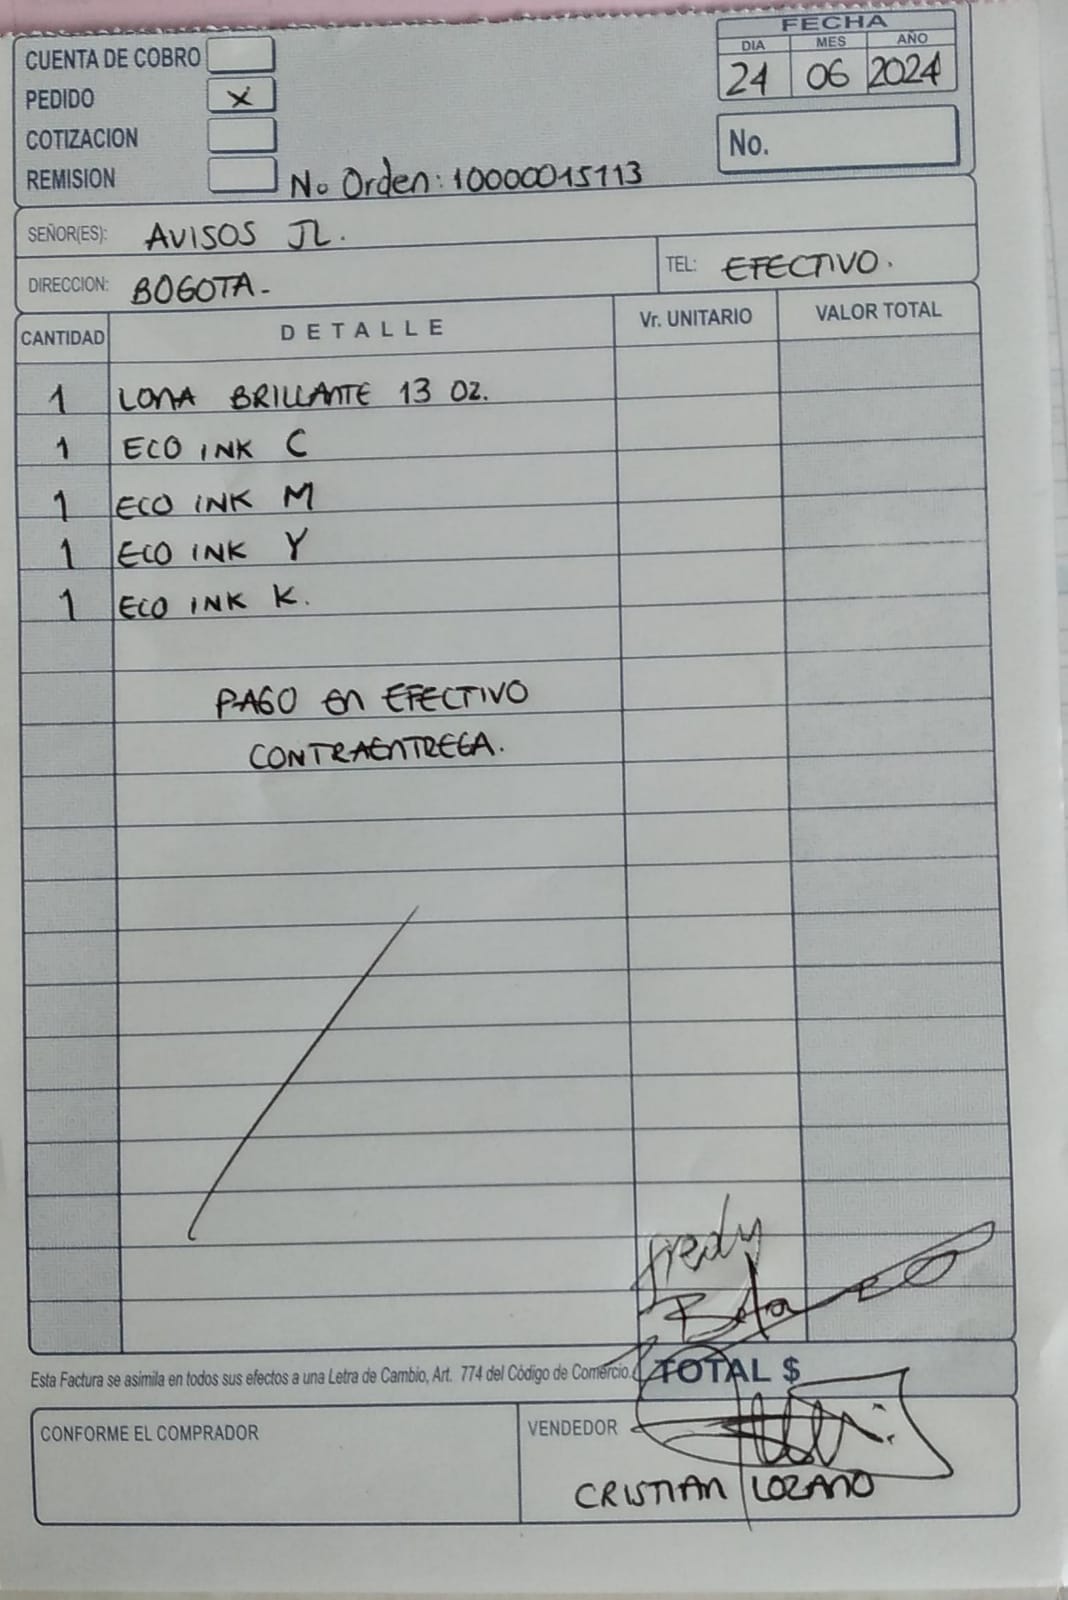 FECHA
DIA MES AÑO
24 06 2024
CUENTA DE COBRO
PEDIDO X
COTIZACION
REMISION
No.
No Orden: 10000015113
SEÑOR(ES): AVISOS JL.
DIRECCION: BOGOTA-
TEL: EFECTIVO.
CANTIDAD DETALLE Vr. UNITARIO VALOR TOTAL
1 LONA BRILLANTE 13 OZ.
1 ECO INK C
1 ECO INK M
1 ECO INK Y
1 ECO INK K.
PAGO EN EFECTIVO
CONTRAENTREGA.
fredy
Esta Factura se asimila en todos sus efectos a una Letra de Cambio, Art. 774 del Código de Comercio.
TOTAL $
CONFORME EL COMPRADOR
VENDEDOR
CRISTIAN LOZANO